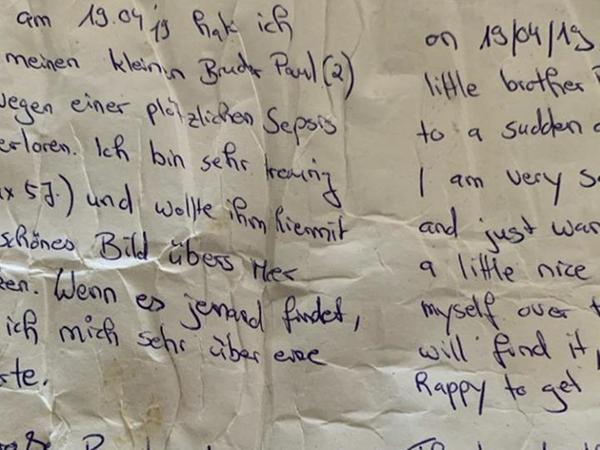 am 19.04'19 hat ich
meinen kleinen Bruder Paul (2)
wegen einer plötzlichen Sepsis
erloren. Ich bin sehr traurig
x 5J.) und wollte ihm hiermit
schönes Bild übers Meer
ken. Wenn es jemand findet,
ich mich sehr über eine
rte.
on 19/04/19
little brother
to a sudden
I am very s
and just wan
a little nice
myself over t
will find it,
happy to get